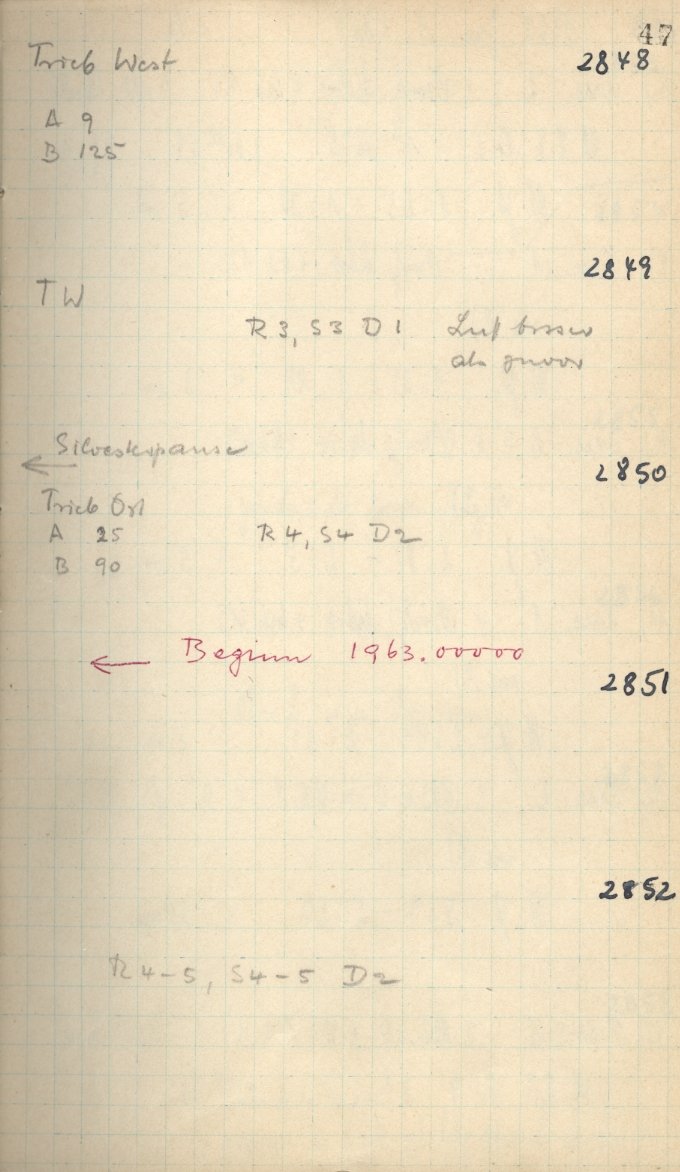 47
Trieb West 2848
A 9
B 125
2849
TW
R3, S3 D1 Luft besser
als zuvor
Silvesterpause
← 2850
Trieb Ost
A 25 R4, S4 D2
B 90
← Beginn 1963.00000
2851
2852
R4-5, S4-5 D2